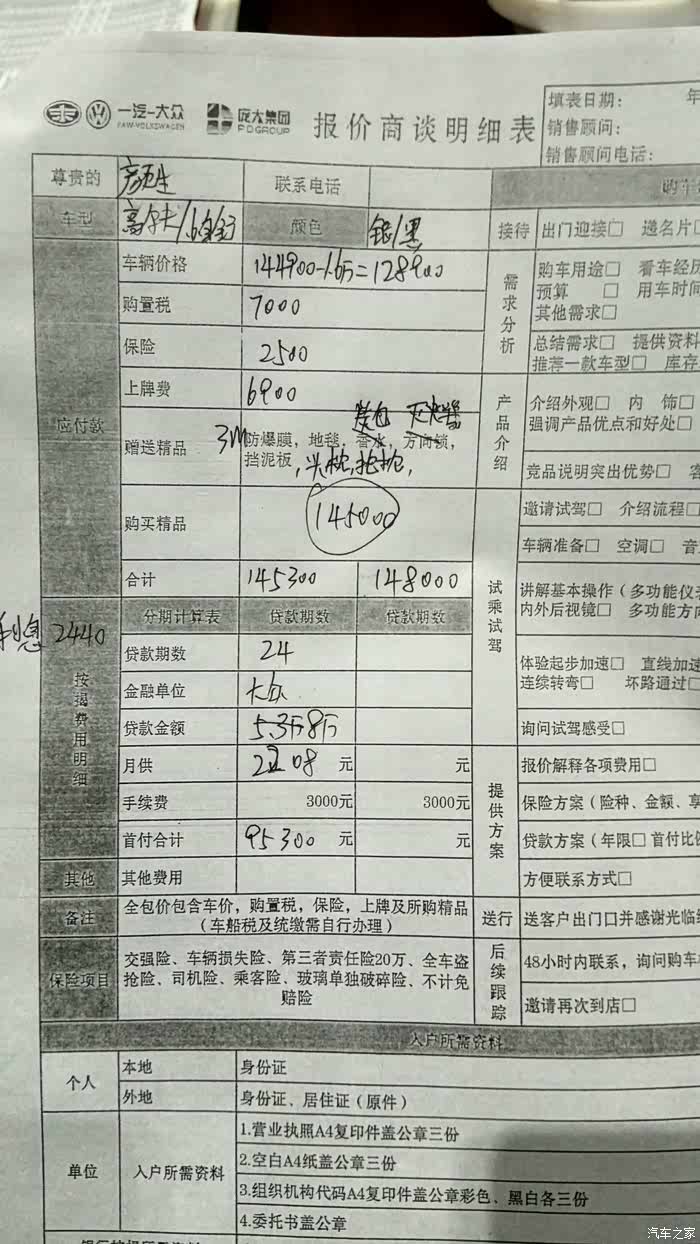 一汽-大众
FAW-VOLKSWAGEN
庞大集团
PDGROUP
报价商谈明细表
填表日期: 年
销售顾问:
销售顾问电话:
尊贵的
联系电话
购车
车型 高尔夫1.6 颜色 银/黑
接待 出门迎接□ 递名片□
应付款
车辆价格 144900-1.6万=128900
购置税 7000
保险 2500
上牌费 6900
赠送精品 3M防爆膜，地毯，香水，方向锁，
灭火器
挡泥板，头枕，抱枕，
购买精品 145000
合计 145300 148000
需求分析
购车用途□ 看车经历
预算 □ 用车时间
其他需求□
总结需求□ 提供资料
推荐一款车型□ 库存
产品介绍
介绍外观□ 内 饰□
强调产品优点和好处□
竞品说明突出优势□ 客
试乘试驾
邀请试驾□ 介绍流程□
车辆准备□ 空调□ 音
讲解基本操作（多功能仪表
内外后视镜□ 多功能方向
体验起步加速□ 直线加速
连续转弯□ 坏路通过□
询问试驾感受□
利息 2440
按揭费用明细
分期计算表 贷款期数 贷款期数
贷款期数 24
金融单位 大众
贷款金额 5.3万8万
月供 2208 元 元
手续费 3000元 3000元
首付合计 95300 元 元
提供方案
报价解释各项费用□
保险方案（险种、金额、享
贷款方案（年限□ 首付比例
方便联系方式□
其他 其他费用
备注 全包价包含车价，购置税，保险，上牌及所购精品
（车船税及统缴需自行办理）
送行 送客户出门口并感谢光临
保险项目 交强险、车辆损失险、第三者责任险20万、全车盗
抢险、司机险、乘客险、玻璃单独破碎险、不计免
赔险
后续跟踪
48小时内联系，询问购车
邀请再次到店□
入户所需资料
个人 本地 身份证
外地 身份证、居住证（原件）
单位 入户所需资料
1.营业执照A4复印件盖公章三份
2.空白A4纸盖公章三份
3.组织机构代码A4复印件盖公章彩色、黑白各三份
4.委托书盖公章
汽车之家